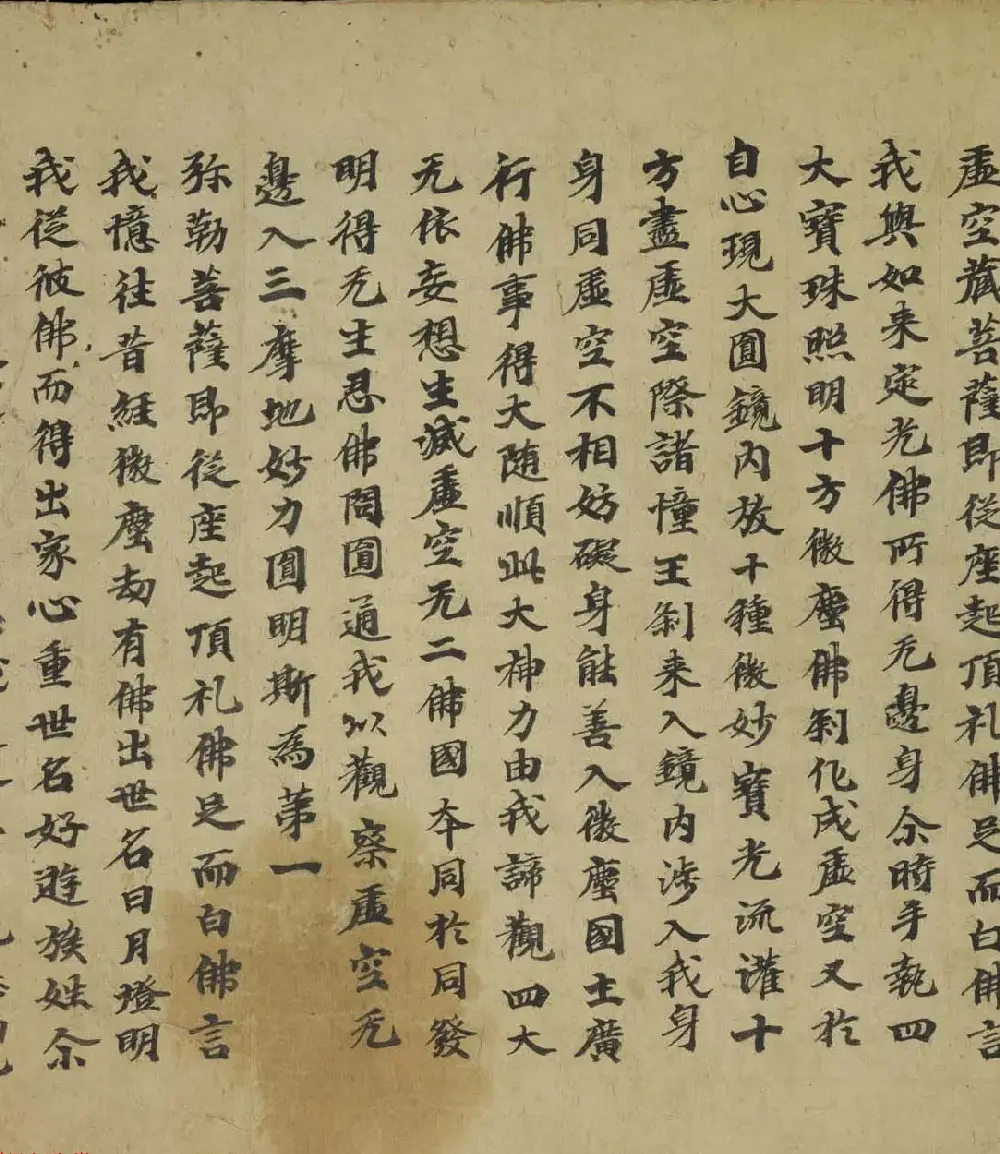 虛空藏菩薩即從座起頂礼佛足而白佛言
我與如来定光佛所得无邊身尒時手執四
大寶珠照明十方微塵佛刹化成虛空又於
自心現大圓鏡內放十種微妙寶光流灌十
方盡虛空際諸幢王刹来入鏡內涉入我身
身同虛空不相妨礙身能善入微塵國土廣
行佛事得大随順此大神力由我諦觀四大
无依妄想生滅虛空无二佛國本同於同發
明得无生忍佛問圓通我以觀察虛空无
邊入三摩地妙力圓明斯為第一
弥勒菩薩即從座起頂礼佛足而白佛言
我憶往昔經微塵劫有佛出世名日月燈明
我從彼佛而得出家心重世名好遊族姓尒